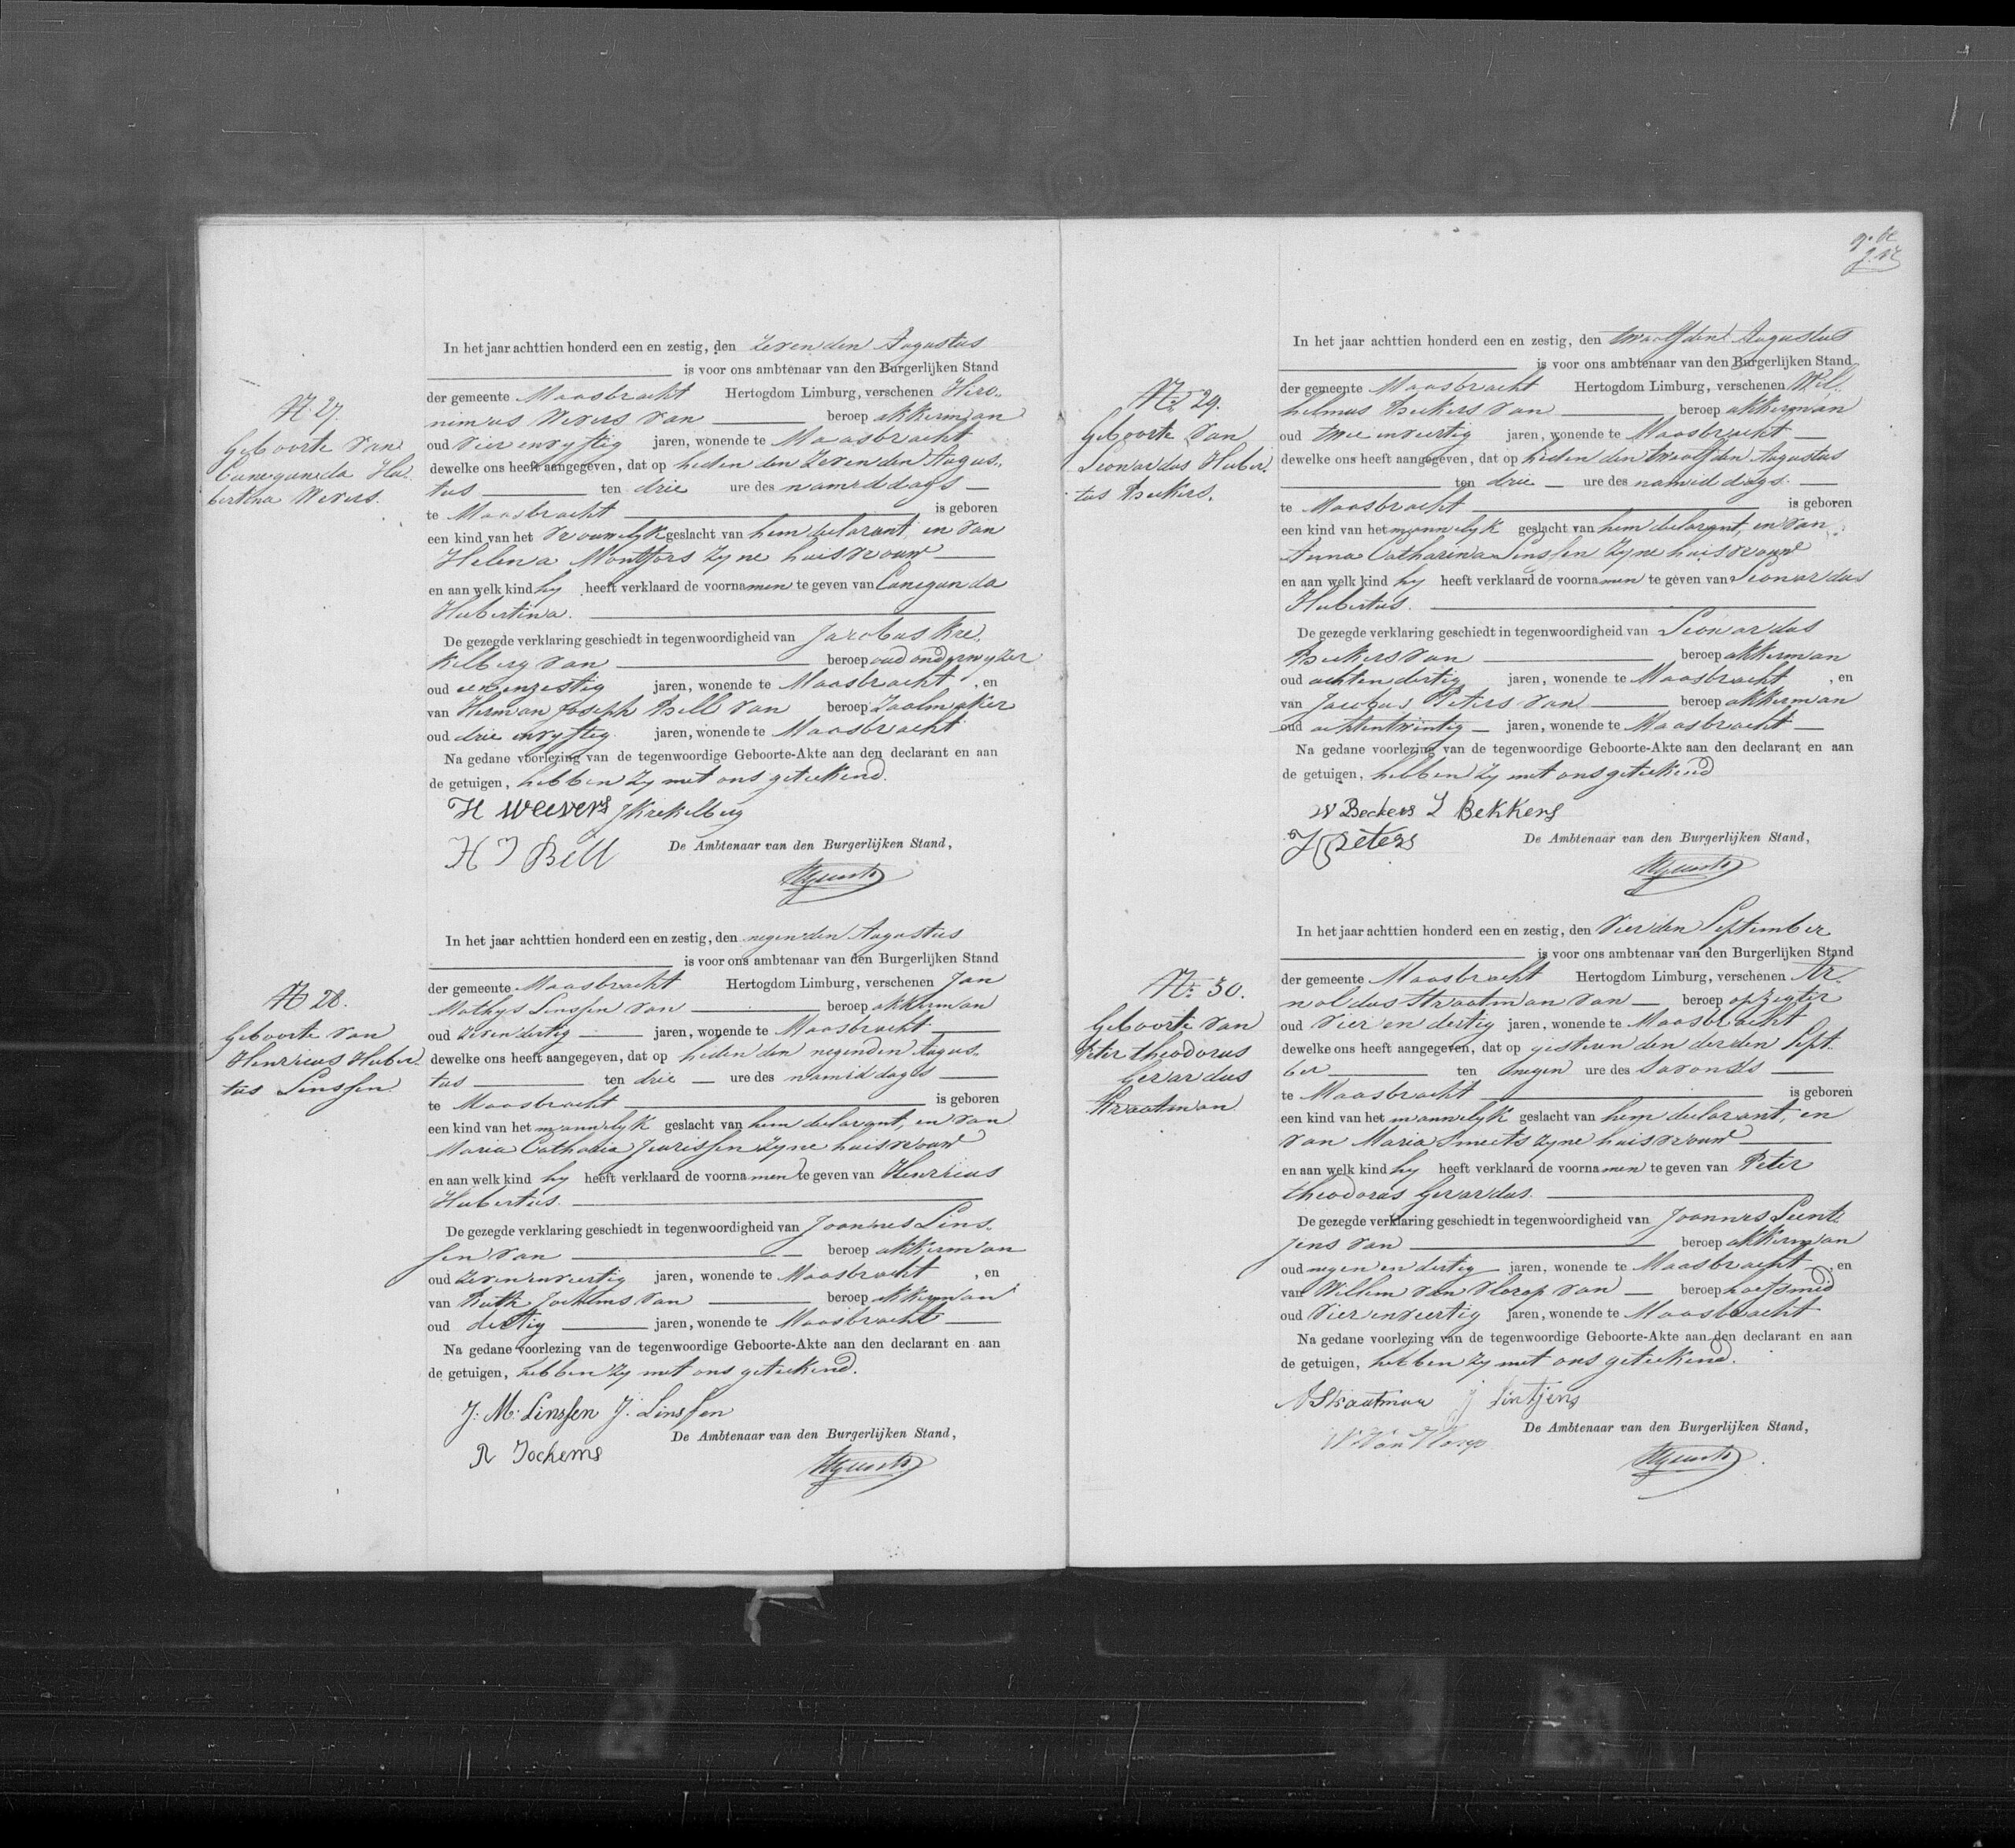 In het jaar achttien honderd een en zestig, den zevenden Augustus
is voor ons ambtenaar van den Burgerlijken Stand
N 27.
Geboorte van
Cunegunda Hu-
bertina Wevers.
der gemeente Maasbracht Hertogdom Limburg, verschenen Hiro-
nimus Wevers van beroep akkerman
oud vier en vyftig jaren, wonende te Maasbracht
dewelke ons heeft aangegeven, dat op heden den zevenden Augus-
tus ten drie ure des namiddags
te Maasbracht is geboren
een kind van het vrouwelyk geslacht van hem declarant, en van
Helena Montfors zyne huisvrouw
en aan welk kind hy heeft verklaard de voornamen te geven van Cunegunda
Hubertina.
De gezegde verklaring geschiedt in tegenwoordigheid van Jacobus Kre-
kelberg van beroep oud onderwyzer
oud een en zestig jaren, wonende te Maasbracht, en
van Herman Joseph Bell van beroep Zaalmaker
oud drie en vyftig jaren, wonende te Maasbracht
Na gedane voorlezing van de tegenwoordige Geboorte-Akte aan den declarant en aan
de getuigen, hebben zy met ons geteekend.
H Weevers J Krekelberg
H J Bell De Ambtenaar van den Burgerlijken Stand,
In het jaar achttien honderd een en zestig, den negenden Augustus
is voor ons ambtenaar van den Burgerlijken Stand
N 28.
Geboorte van
Henricus Huber-
tus Linssen
der gemeente Maasbracht Hertogdom Limburg, verschenen Jan
Mathys Linssen van beroep akkerman
oud zevendertig jaren, wonende te Maasbracht
dewelke ons heeft aangegeven, dat op heden den negenden Augus-
tus ten drie ure des namiddags
te Maasbracht is geboren
een kind van het mannelyk geslacht van hem declarant, en van
Maria Catharia Jeurissen zyne huisvrouw
en aan welk kind hy heeft verklaard de voornamen te geven van Henricus
Hubertus.
De gezegde verklaring geschiedt in tegenwoordigheid van Joannes Lins-
sen van beroep akkerman
oud zevenenveertig jaren, wonende te Maasbracht, en
van Ruth Jochems van beroep akkerman
oud dertig jaren, wonende te Maasbracht
Na gedane voorlezing van de tegenwoordige Geboorte-Akte aan den declarant en aan
de getuigen, hebben zy met ons geteekend.
J: M: Linssen J. Linssen
R Jochems De Ambtenaar van den Burgerlijken Stand,
In het jaar achttien honderd een en zestig, den twaalfden Augustus
is voor ons ambtenaar van den Burgerlijken Stand
No 29.
Geboorte van
Leonardus Huber-
tus Beckers.
der gemeente Maasbracht Hertogdom Limburg, verschenen Wil-
helmus Beckers van beroep akkerman
oud twee en veertig jaren, wonende te Maasbracht
dewelke ons heeft aangegeven, dat op heden den twaalfden Augustus
ten drie ure des namiddags.
te Maasbracht is geboren
een kind van het mannelyk geslacht van hem declarant, en van
Anna Catharina Linssen zyne huisvrouw
en aan welk kind hy heeft verklaard de voornamen te geven van Leonardus
Hubertus.
De gezegde verklaring geschiedt in tegenwoordigheid van Leonardus
Beckers van beroep akkerman
oud achtendertig jaren, wonende te Maasbracht, en
van Jacobus Peters van beroep akkerman
oud achtentwintig jaren, wonende te Maasbracht
Na gedane voorlezing van de tegenwoordige Geboorte-Akte aan den declarant en aan
de getuigen, hebben zy met ons geteekend
W Beckers L Bekkers
J Peters De Ambtenaar van den Burgerlijken Stand,
In het jaar achttien honderd een en zestig, den vierden September
is voor ons ambtenaar van den Burgerlijken Stand
No 30.
Geboorte van
Peter theodorus
Gerardus
Straatman
der gemeente Maasbracht Hertogdom Limburg, verschenen Ar-
noldus Straatman van beroep opzigter
oud vier en dertig jaren, wonende te Maasbracht
dewelke ons heeft aangegeven, dat op gisteren den derden Sept-
ber ten negen ure des savonds
te Maasbracht is geboren
een kind van het mannelyk geslacht van hem declarant, en
van Maria Smeets zyne huisvrouw
en aan welk kind hy heeft verklaard de voornamen te geven van Peter
theodorus Gerardus.
De gezegde verklaring geschiedt in tegenwoordigheid van Joannes Lent-
jens van beroep akkerman
oud negen en dertig jaren, wonende te Maasbracht, en
van Willem van Vlorop van beroep hoefsmid
oud vier en veertig jaren, wonende te Maasbracht
Na gedane voorlezing van de tegenwoordige Geboorte-Akte aan den declarant en aan
de getuigen, hebben zy met ons geteekend.
A Straatman J Lintjens
W Van Vlorop De Ambtenaar van den Burgerlijken Stand,